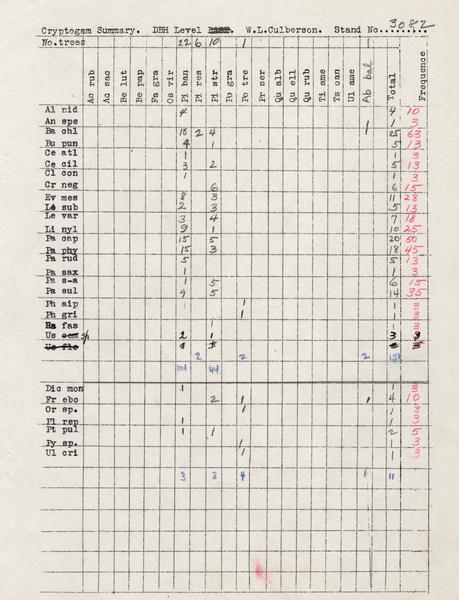 3082
Cryptogam Summary. DBH Level W.L.Culberson. Stand No.
No.trees 22 6 10 1
Ac rub Ac sac Be lut Be pap Fa gra Os vir Pi ban Pi res Pi str Po gra Po tre Pr ser Qu alb Qu ell Qu rub Ti ame Ts can Ul ame Ab bal Total Frequence
Al nid 4 4 10
An spe 1 1 3
Ba chl 18 2 4 1 25 63
Bu pun 4 1 5 13
Ce atl 1 1 3
Ce cil 3 2 5 13
Cl con 1 1 3
Cr neg 6 6 15
Ev mes 8 3 11 28
Le sub 2 3 5 13
Le var 3 4 7 18
Li nyl 9 1 10 25
Pa cap 15 5 20 50
Pa phy 15 3 18 45
Pa rud 5 5 13
Pa sax 1 1 3
Pa s-a 1 5 6 15
Pa sul 9 5 14 35
Ph aip 1 1 3
Ph gri 1 1 3
Ra fas 1 1 3
Us 2 1 3
Us flo
2 2 2
101 44
Dic mon 1 1 3
Fr ebo 2 1 1 4 10
Or sp. 1 1 3
Pl rep 1 1 3
Pt pul 1 1 2 5
Py sp. 1 1 3
Ul cri 1 1 3
3 3 4 1 11